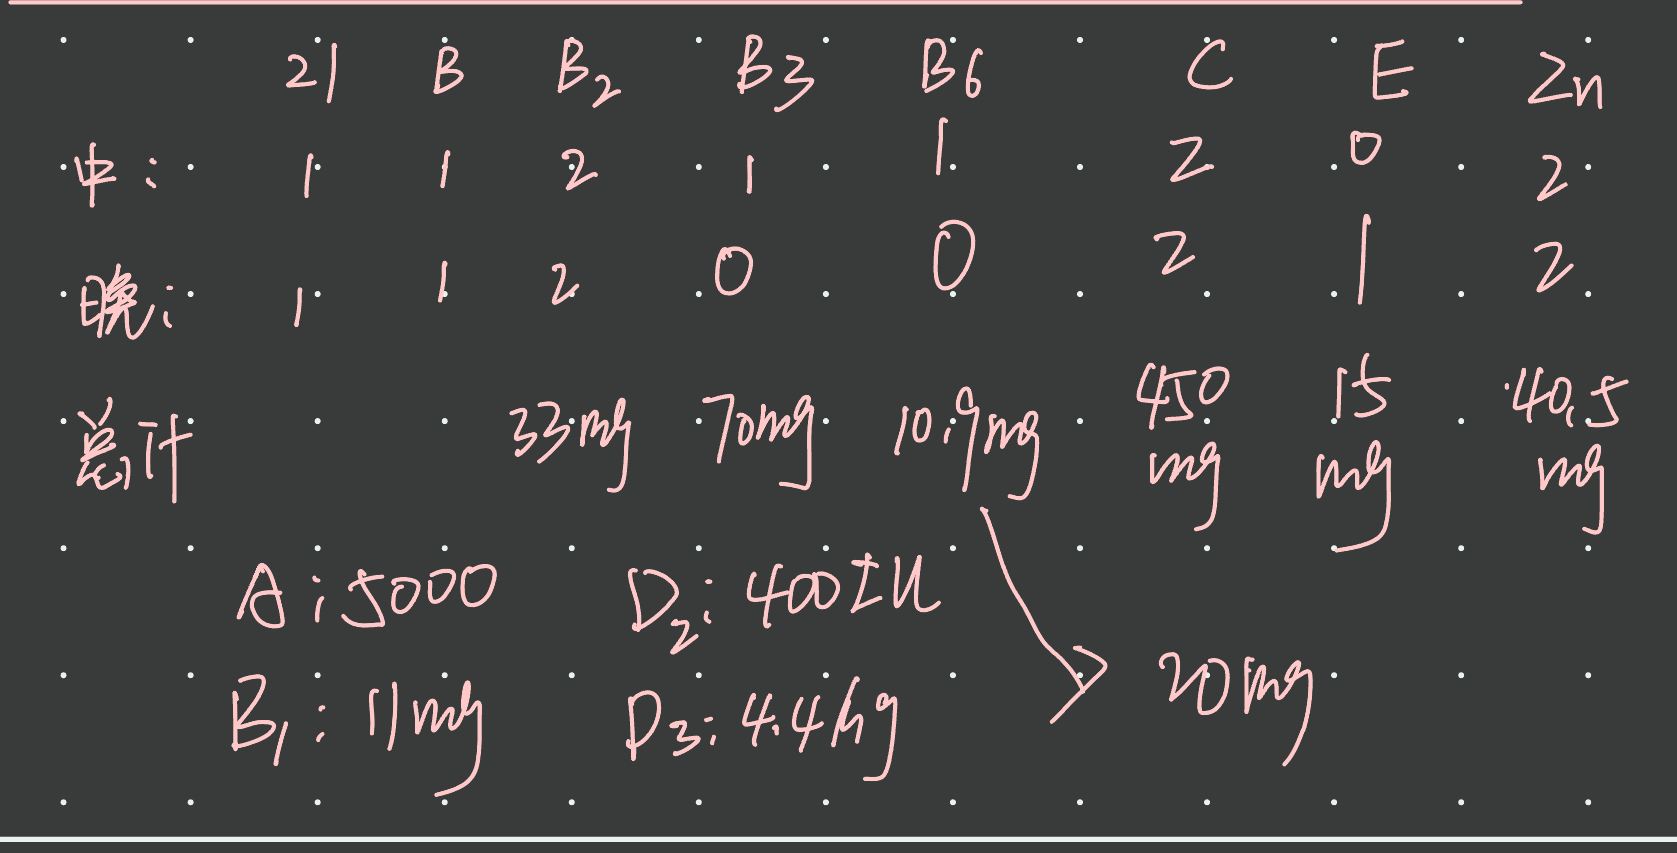 21 B B₂ B3 B6 C E Zn
中: 1 1 2 1 1 2 0 2
晚: 1 1 2 0 0 2 1 2
总计 33mg 70mg 10.9mg 450mg 15mg 40.5mg
A: 5000 D₂: 400IU
20mg
B₁: 11mg D₃: 4.4μg